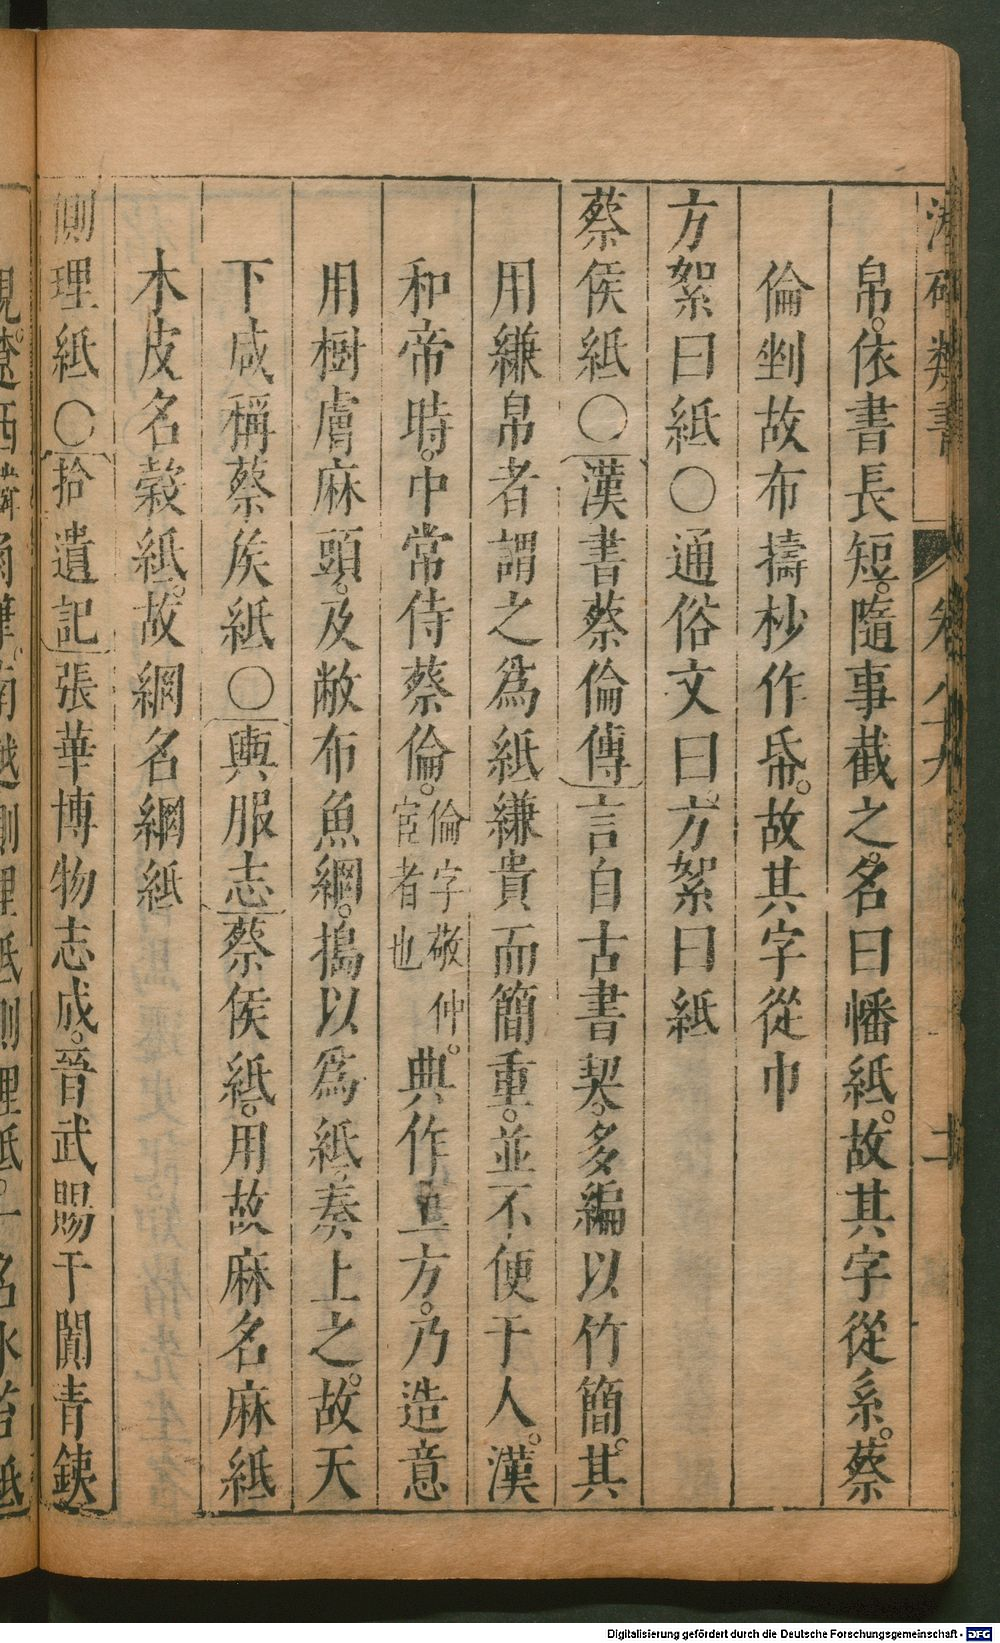 潛確類書 卷八九
帛。依書長短。隨事截之。名曰幡紙。故其字從系。蔡
倫剉故布擣杪作帋。故其字從巾
方絮曰紙〇通俗文曰。方絮曰紙
蔡侯紙〇漢書蔡倫傳言自古書契。多編以竹簡。其
用縑帛者謂之爲紙縑貴而簡重。並不便于人。漢
和帝時。中常侍蔡倫。倫字敬仲。宦者也典作上方。乃造意
用樹膚麻頭。及敝布魚網。搗以爲紙。奏上之。故天
下咸稱蔡矦紙〇輿服志蔡侯紙。用故麻名麻紙
木皮名榖紙。故網名網紙
側理紙〇拾遺記張華博物志成。晉武賜于闐青鐵
硯。遼西麟角筆。南越側理紙側理紙。一名水苔紙
Digitalisierung gefördert durch die Deutsche Forschungsgemeinschaft - DFG